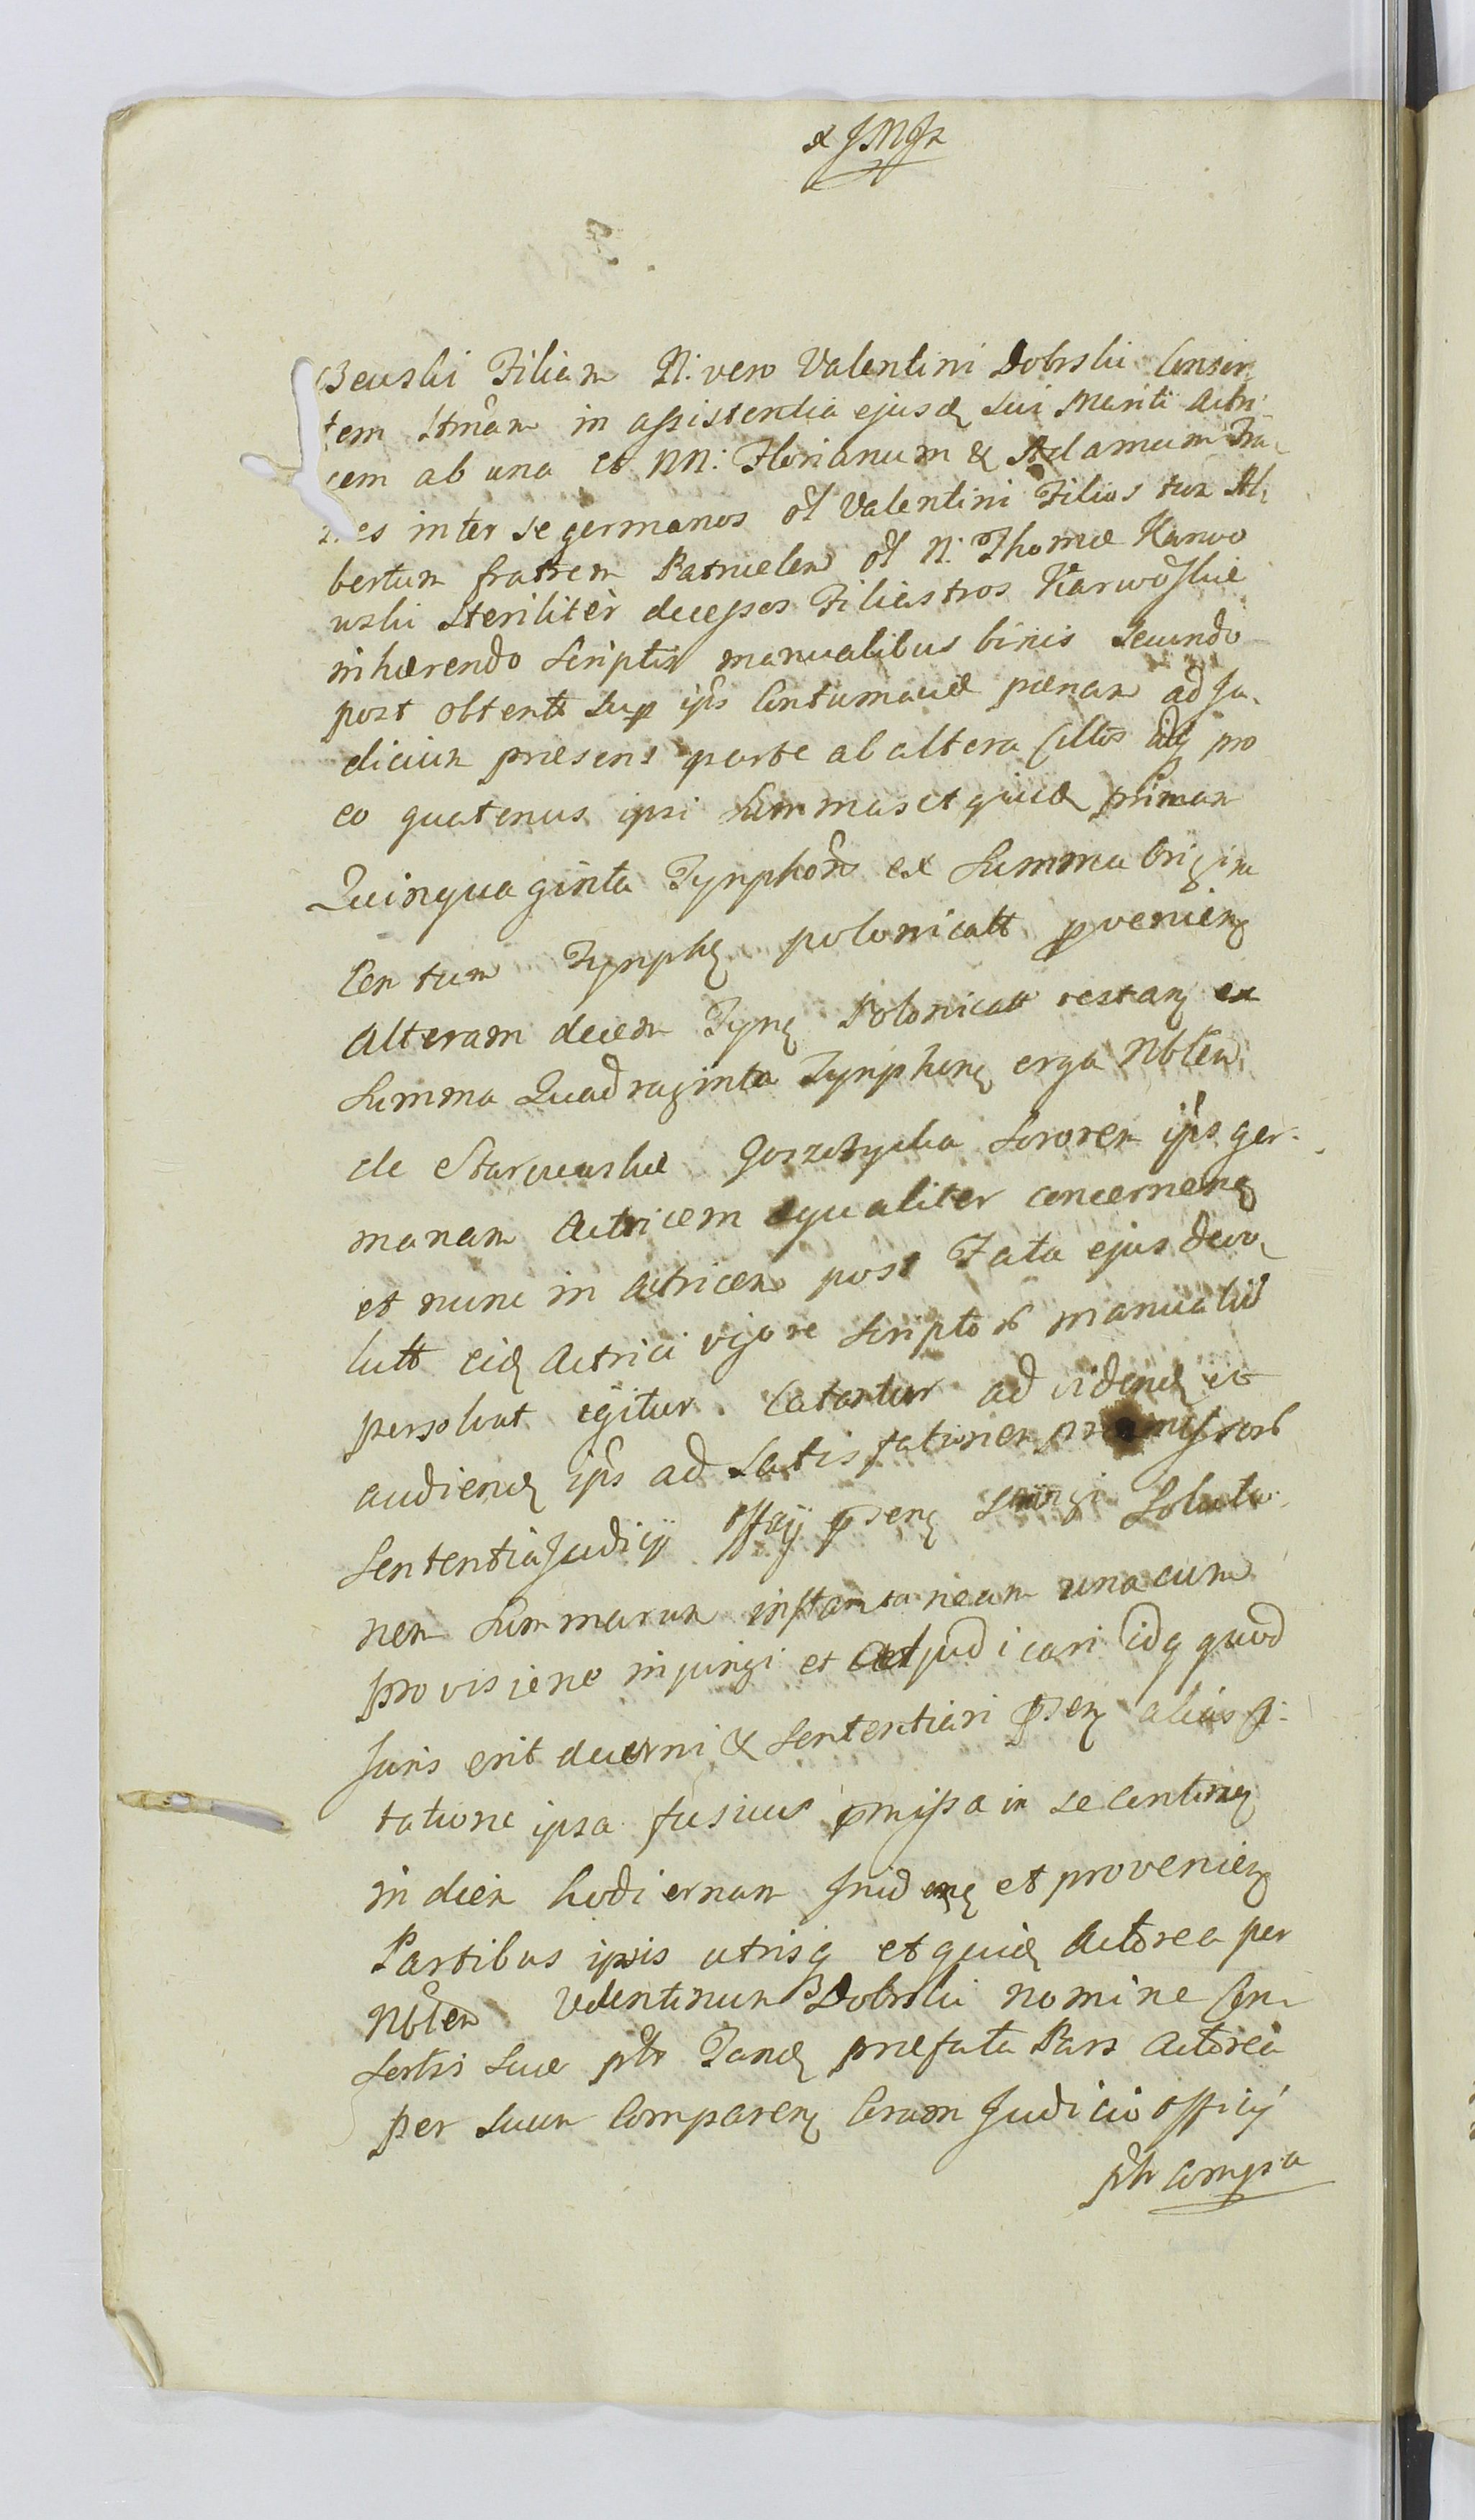 Beuski Filiam N: vero Valentini Dobrski Consor
tem ltmam in assistentia ejusd sui Mariti Actri
cem ab una et NN: Florianum & Adamum Fra
es inter se germanos ol Valentini Filios tum Al
bertum fratrem Patruelem ol N: Thomæ Karwo
wski steriliter decessos Filiastros Karwoskie
inhærendo Scriptis manualibus binis Secundo
post obtent sup ips Contumaciæ pænam ad Ju
dicium præsens parte ab altera Cittos idq pro
eo quatenus ipsi Summas et quid primam
Quinquaginta Tynphon ex Summa Origin
Centum Tynph polonicalt pvenien
Alteram decem Tynf Polonicalt restan ex
Summa Quadraginta Tynphon erga Nblem
de Goszczycka Sororem ips ger
manam Actricem equaliter concernen
et nunc in actricem post Fata ejus devo
lutt eid Actrici vigore Scriptor manualiu
persolvat igitur Catantur ad viden et
audien ips ad Satisfationem præmissor
Sententia Judicij Offij psen Solutio
nem Summarum instantaneam una cum
provisione injungi et Adjudicari idq quod
Juris erit decerni & Sententiari psen alias
tatione ipsa fusius pmissa in se Continen
in diem hodiernam Inciden et provenien
Partibus ipsis utrisq et quid Actorea per
Nblem Valentinum Dobrski nomine Con
sortis Suæ ptr Tand præfata Pars Actorea
per Suum Comparen Coram Judicio Officij
ptr Compa